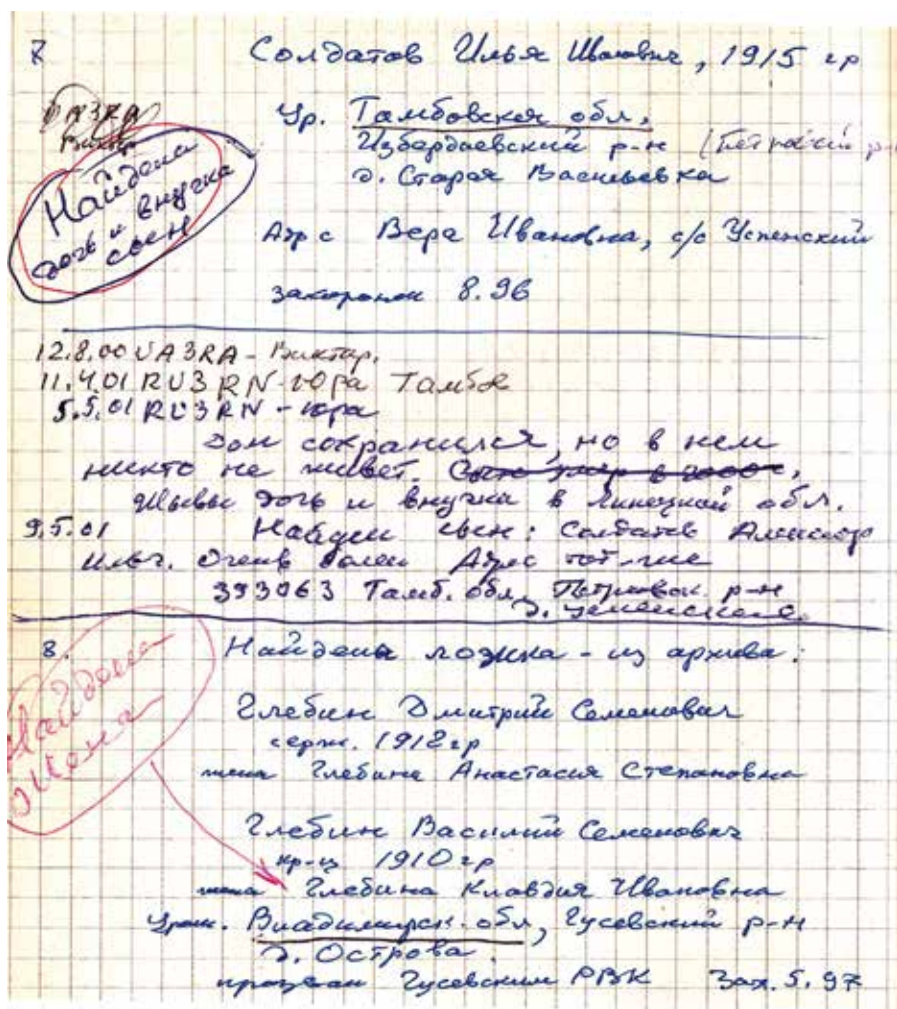 7
Солдатов Илья Иванович, 1915 гр
UA3RA
Виктор
Найдена
дочь и внучка
сын
Ур. Тамбовская обл.
Избердаевский р-н (Петровский р-н
д. Старая Васильевка
Адр с Вера Ивановна, с/с Успенский
захоронен 8.96
12.8.00 UA3RA - Виктор.
11.4.01 RU3RN - Юра Тамбов
5.5.01 RU3RN - Юра
Дом сохранился, но в нем
никто не живет. Сын умер в
Живы дочь и внучка в Липецкой обл.
9.5.01 Найден сын: Солдатов Александр
Ильич. Очень болен Адрес тот-же
393063 Тамб. обл. Петровск. р-н
д.
8.
Найдена ложка - из архива:
Найдена
жена
Глебин Дмитрий Семенович
серж. 1912 гр
жена Глебина Анастасия Степановна
Глебин Василий Семенович
кр-ц 1910 гр
жена Глебина Клавдия Ивановна
Урож. Владимирск. обл, Гусевский р-н
д. Острова.
призван Гусевским РВК Зах. 5.97